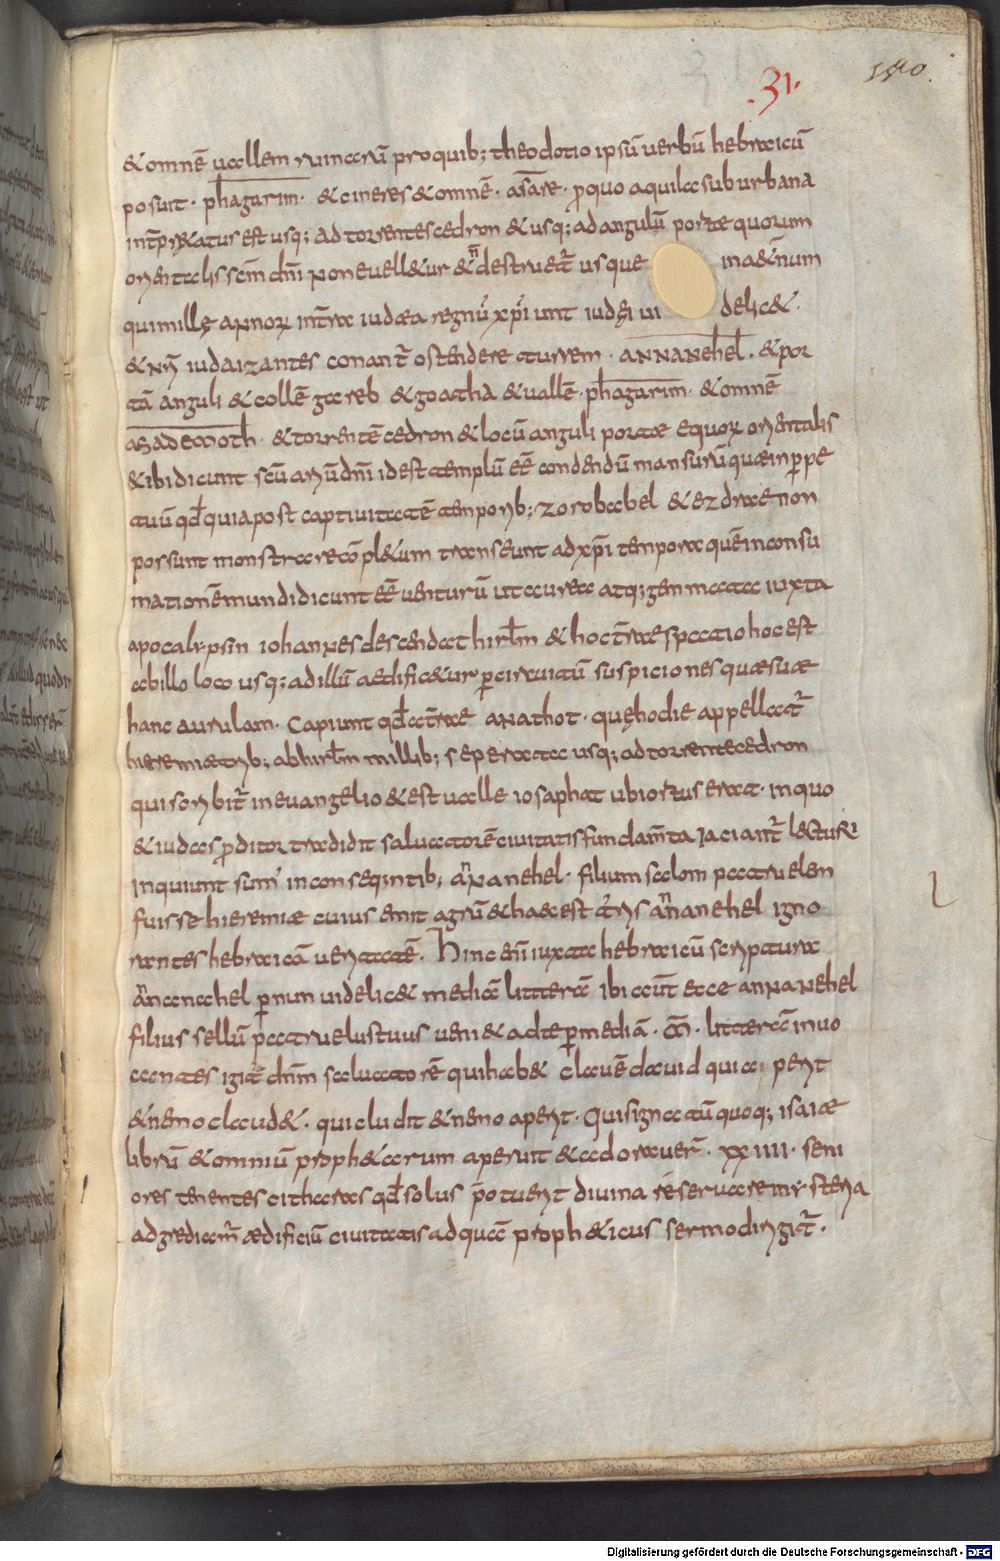 .31.
150.
& omnē uallem ruinarū proquib; theodotio ipsū uerbū hebraicū
posuit · phagarim · & cineres & omnē · asare · pquo aquila suburbana
intp̄r&atus est usq; ad torrentes cedron & usq; ad angulū portae quorum
orientalis scm̄ dn̄i non euell&ur & n̄ destruet̄ usque in aet̄num
qui mille annoꝝ intra iudaea regnū xp̄i iunt iudęi ui delic& ·
& nr̄i iudaizantes conant̄ ostendere turrem · annanehel · & por
tā anguli & collē gareb & goatha & uallē · phagarim · & omnē
asademoth · & torrentē cedron & locū anguli portae equoꝝ orientalis
& ibi dicunt scū ariū dn̄i id est templū eē̄ condendū mansurū quae in ppe
tuū qd̄ quia post captiuitatē temporib; zorobabel & ezdrae non
possunt monstrare cōpl&um transeunt ad xp̄i tempora quē in consu
mationē mundi dicunt eē̄ uenturū ut aurea atq; gemmata iuxta
apocalypsin iohannes descendat hirlm̄ & hoc trae spatio hoc est
ab illo loco usq; ad illū aedific&ur p circuitū suspiciones quae suae
hanc aurulam · Capiunt qd̄ atrae anathot · quę hodie appellat̄
hieremiae trib; ab hirlm̄ millib; seperata usq; ad torrente cedron
qui scribit̄ in euangelio & est ualle iosaphat ubi ortus erat · in quo
& iudas pditor tradidit saluatorē ciuitatis fundam̄ta jaciant̄ lecturi
inquiunt sum̄ in conseq;ntib; ananehel · filium salom patruelem
fuisse hieremiae cuius emit agrū & haec est t̄ris ananehel igno
rantes hebraicā ueritatē · Hinc en̄i iuxta hebraicū scriptura
ancanehel p nun uidelic& mediā litterā ibi aut̄ ecce annanehel
filius sellū patruelus tuus ueni & ad te p mediā · ām · litterā inuo
cantes igit̄ dnm̄ saluatorē qui hab& clauē dauid qui aperit
& nemo claud& · qui cludit & nemo aperit · Qui signatū quoq; isaiae
librū & omniū proph&arum aperuit & adorauer̄ · xxiiii · seni
ores tenentes citharas qd̄ solus potuerit diuina reseruare mysteria
adgrediam̄ aedificiū ciuitatis ad quā proph&icus sermo dirigit̄ ·
Digitalisierung gefördert durch die Deutsche Forschungsgemeinschaft - DFG